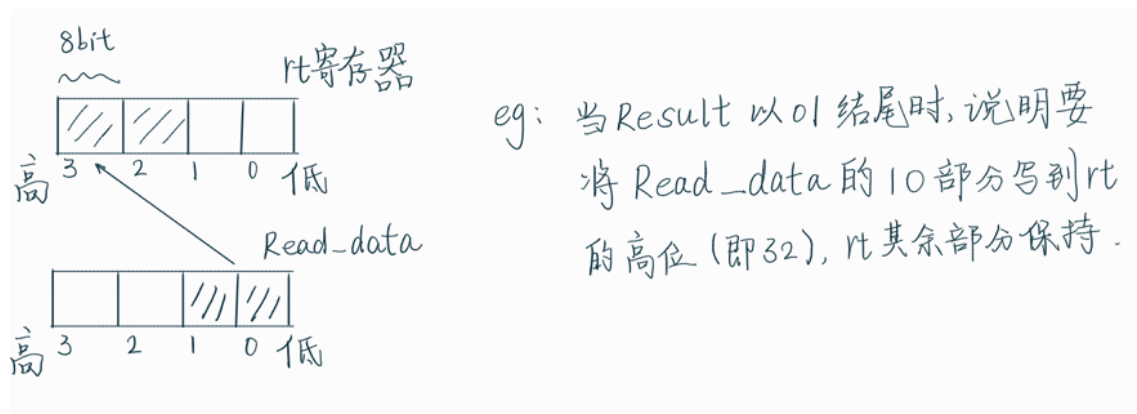 8bit
rt寄存器
高 3 2 1 0 低
Read_data
高 3 2 1 0 低
eg: 当Result 以01结尾时,说明要
将 Read_data 的 10 部分写到rt
的高位 (即32), rt其余部分保持.